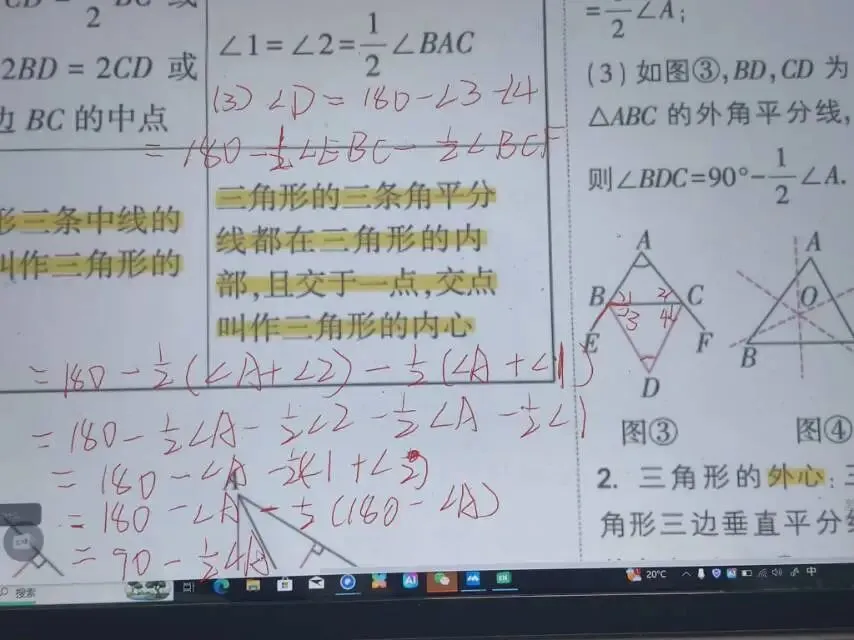 CD = 1/2 BC 或
2BD = 2CD 或
边 BC 的中点
∠1 = ∠2 = 1/2 ∠BAC
(3) ∠D = 180 - ∠3 - ∠4
= 180 - 1/2 ∠EBC - 1/2 ∠BCF
形三条中线的
叫作三角形的
三角形的三条角平分
线都在三角形的内
部,且交于一点,交点
叫作三角形的内心
= 180 - 1/2 (∠A + ∠2) - 1/2 (∠A + ∠1)
= 180 - 1/2 ∠A - 1/2 ∠2 - 1/2 ∠A - 1/2 ∠1
= 180 - ∠A - 1/2 (∠1 + ∠2)
= 180 - ∠A - 1/2 (180 - ∠A)
= 90 - 1/2 ∠A
= 1/2 ∠A;
(3) 如图③,BD,CD 为
△ABC 的外角平分线,
则∠BDC=90°-1/2 ∠A.
A
B 1 2 C
3 4
E F
D
图③
A
O
B
图④
2. 三角形的外心:三
角形三边垂直平分线
搜索
20°C
中